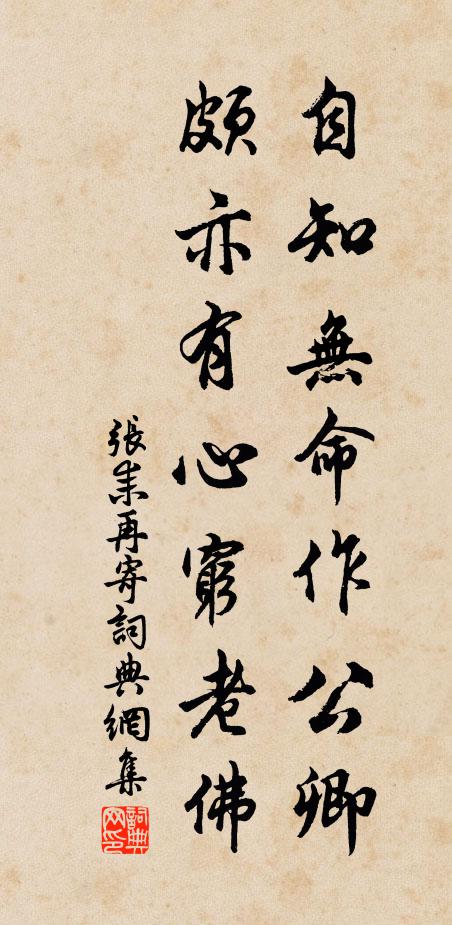 自知無命作公卿
頗亦有心窮老佛
張耒再寄詞典網集
詞典网印